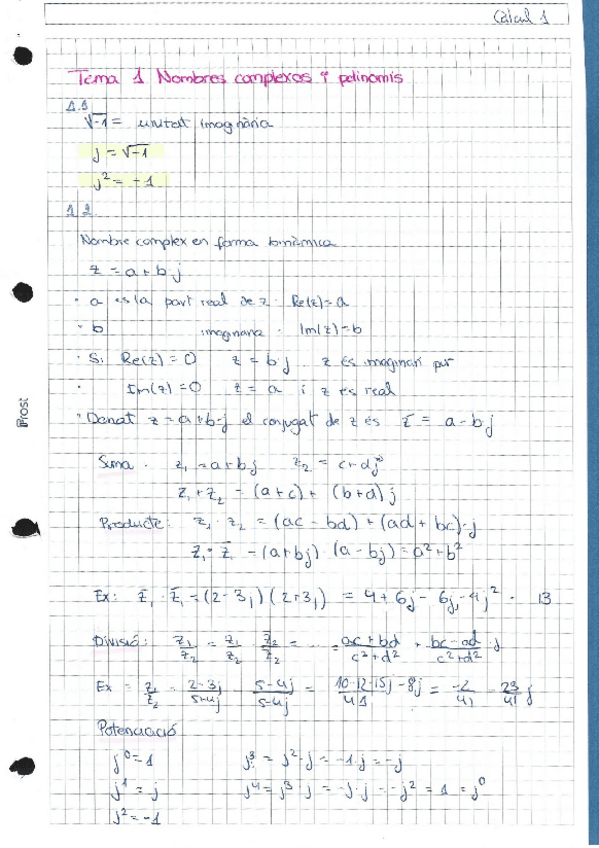 Càlcul 1
Tema 1 Nombres complexos i polinomis
1.1
√-1 = unitat imaginària
j = √-1
j² = -1
1.2
Nombre complex en forma binòmica
z = a + b·j
· a és la part real de z · Re(z) = a
· b imaginària · Im(z) = b
· Si Re(z) = 0 z = b·j z és imaginari pur
· Im(z) = 0 z = a i z és real
· Donat z = a + b·j el conjugat de z és z̄ = a - b·j
Suma · z₁ = a + b·j z₂ = c + d·j
z₁ + z₂ = (a+c) + (b+d)·j
Producte: z₁ · z₂ = (ac - bd) + (ad + bc)·j
z₁ · z̄ = (a+bj) · (a - bj) = a² + b²
Ex: z₁ · z̄₁ = (2-3j)(2+3j) = 4 + 6j - 6j - 9j² = 13
Divisió: z₁/z₂ = z₁/z₂ · z̄₂/z̄₂ = ... = (ac + bd)/(c² + d²) + (bc - ad)/(c² + d²) · j
Ex = z₁/z₂ = (2-3j)/(5+4j) · (5-4j)/(5-4j) = (10-12-15j-8j)/41 = -2/41 - 23/41 j
Potenciació
j⁰ = 1 j³ = j² · j = -1·j = -j
j¹ = j j⁴ = j³ · j = -j·j = -j² = 1 = j⁰
j² = -1